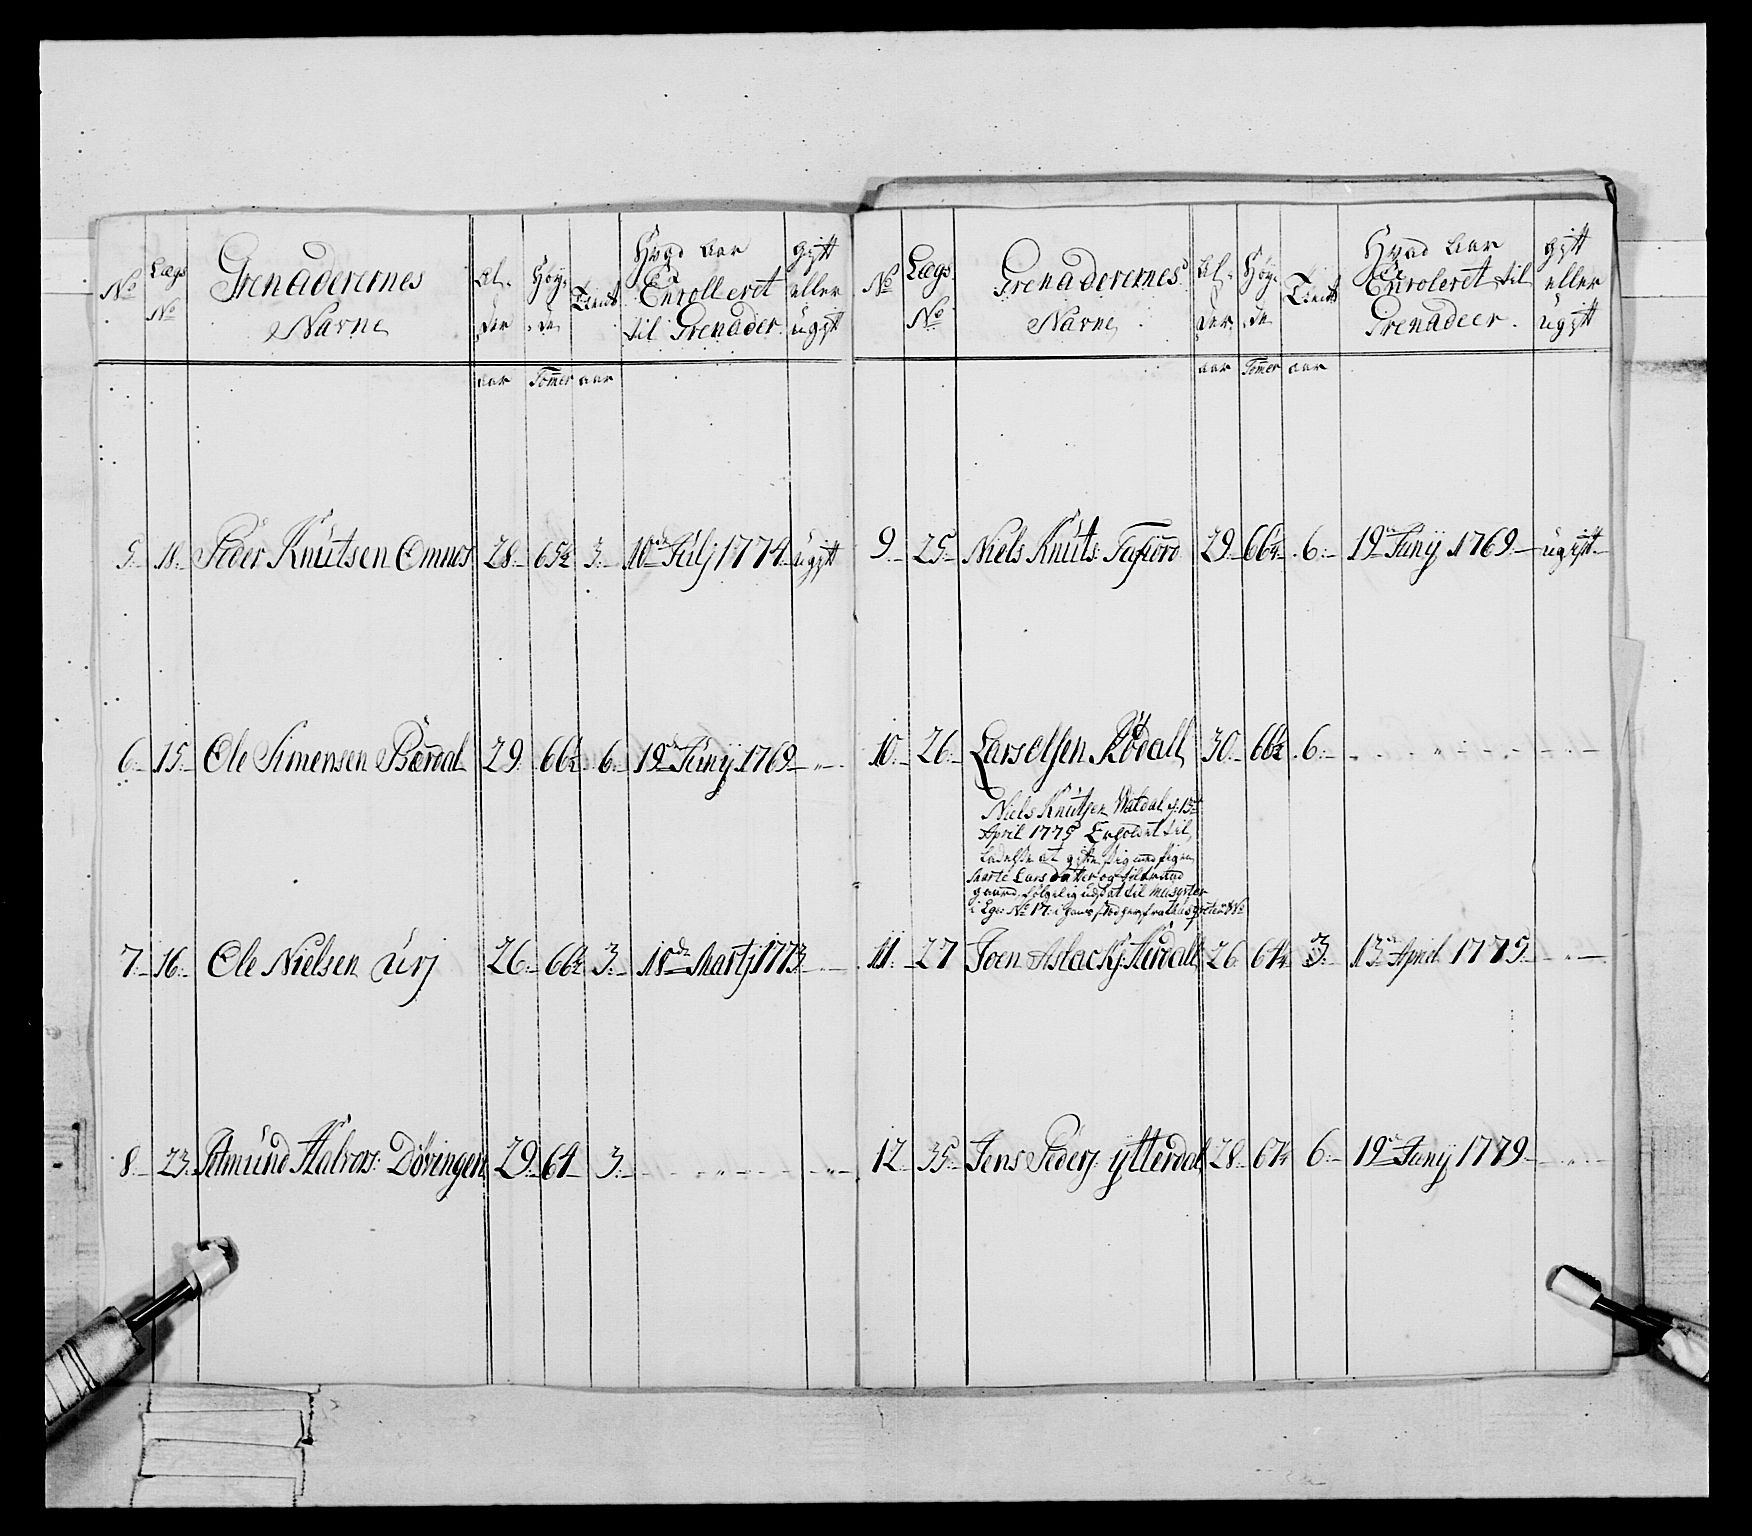 No
Lægs No
Grenaderernes Navne
Al- der
Høy- de
Tient
Hvad Aar Enrolleret til Grenader
gift eller ugift
aar Tomer aar
5. 18. Peder Knutsen Omnos 28. 65½ 3. 10de Julj 1774. ugift
6. 15. Ole Simensen Bærdal 29. 66½ 6. 19de Junij 1769 - „ -
7. 16. Ole Nielsen Urj 26. 66½ 3. 18de Martj 1773 - „ -
8. 23. Amund Halvors: Døvingen 29. 64 3. - „ - „ -
No
Lægs No
Grenaderernes Navne
Al- der
Høy- de
Tient
Hvad Aar Enroleret til Grenadeer.
gift eller ugift
aar Tomer aar
9. 25. Niels Knuts: Tafiord 29. 66¼ 6. 19de Junij 1769. ugift
10. 26. Lars Olsen Rødall 30. 66½ 6. - „ - „ -
Niels Knutsen Waldal d: 13de
April 1775 til
at gifte sig med Pigen
Marte Lars datter og
gaard, følgelig udsat til
i Lgs: No 17:
11. 27 Joen Aslachs: Hirdall 26 64¼ 3. 13de April 1775. - „ -
12. 35. Jens Peders: Ytterdal 28. 67¼ 6. 19de Junij 1779. - „ -